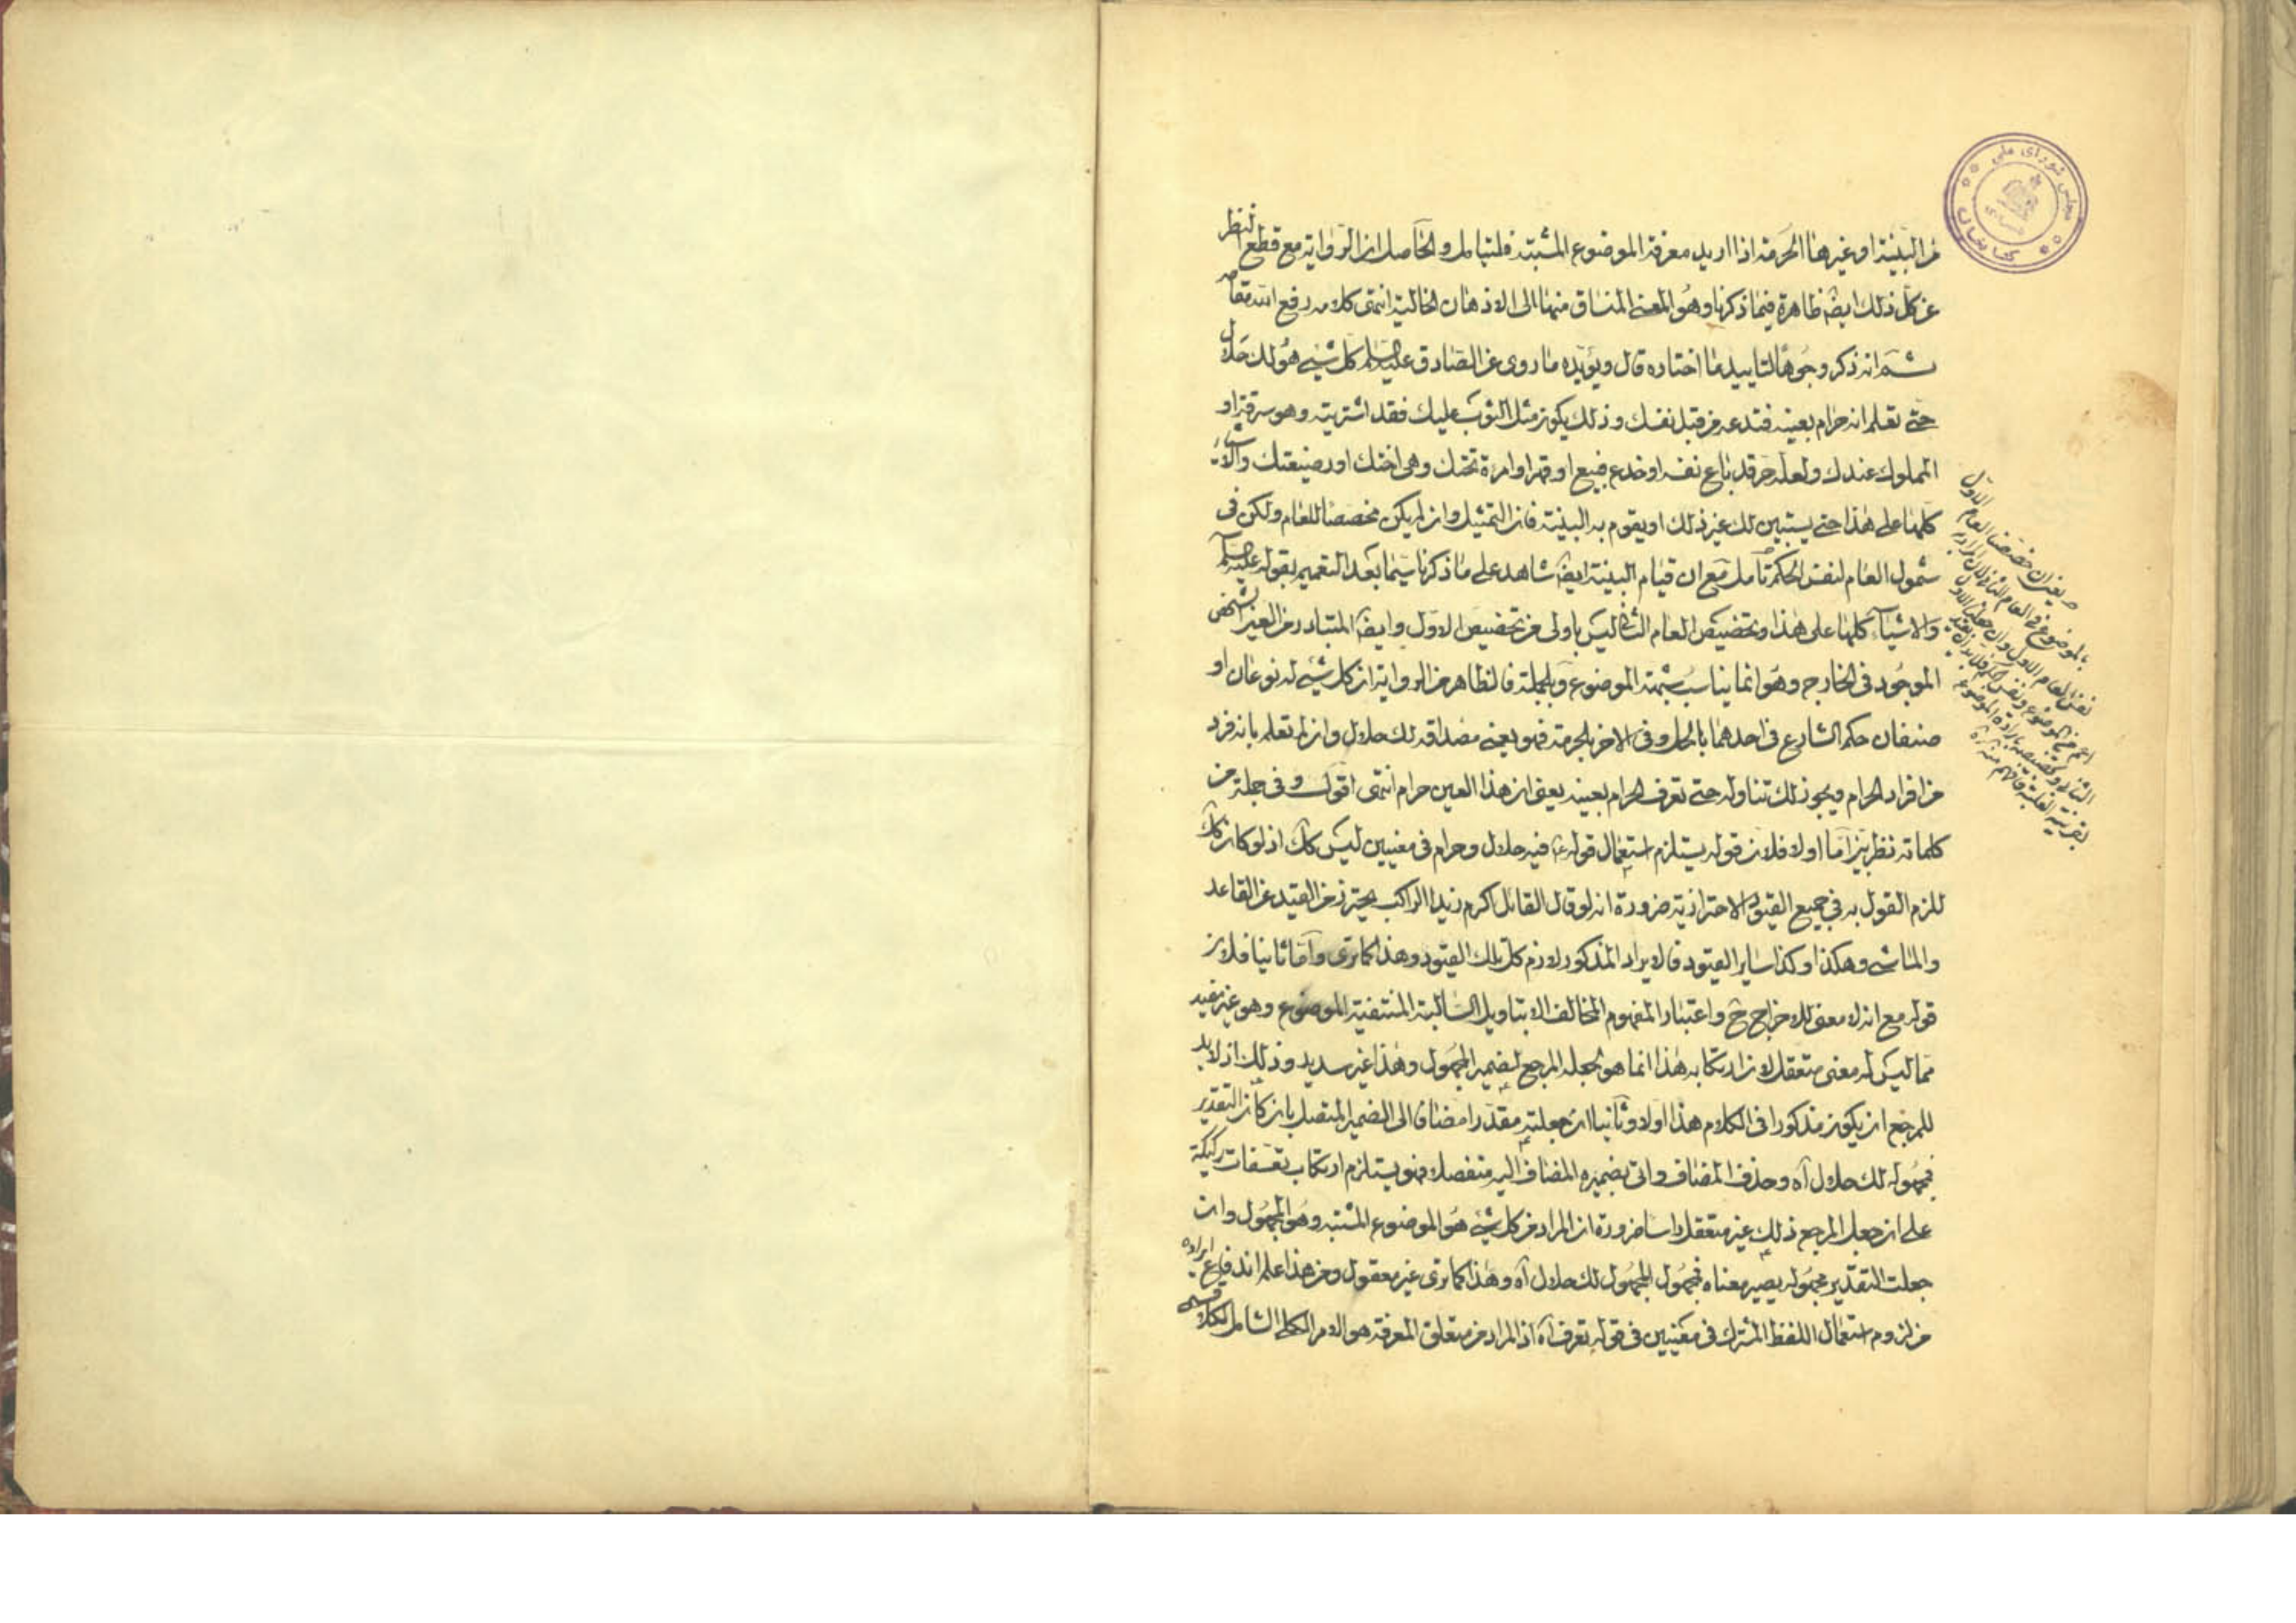 من البينة او غيرها الحرمة اذا اريد معرفة الموضوع المشتبه فليتامل والحاصل ان الرواية مع قطع النظر
عن كل ذلك ايضا ظاهرة فيما ذكرنا وهو المعنى المنساق منها الى الاذهان الخالية انتهى كلامه رفع الله مقامه
ثم انه ذكر وجوها لتاييد ما اختاره قال ويؤيده ما روى عن الصادق عليه السلم كل شئ هو لك حلال
حتى تعلم انه حرام بعينه فتدعه من قبل نفسك وذلك يكون مثل الثوب عليك فقد اشتريته وهو سرقة او
المملوك عندك ولعله حر قد باع نفسه او خدع فبيع او قهرا وامرءة تحتك وهى اختك او رضيعتك والاشياء
كلها على هذا حتى يستبين لك غير ذلك او يقوم به البينة فان التمثيل وان لم يكن مخصصا للعام ولكن فى
شمول العام لنفس الحكم تامل مع ان قيام البينة ايضا شاهد على ما ذكرنا سيما بعد التعميم بقوله عليه السلم
والاشياء كلها على هذا وتخصيص العام الثانى ليس باولى من تخصيص الاول وايضا المتبادر من العين الشخص
الموجود فى الخارج وهو انما يناسب شبهة الموضوع وبالجملة فالظاهر من الرواية ان كل شئ له نوعان او
صنفان حكم الشارع فى احدهما بالحل وفى الاخر بالحرمة فهو يعنى مصداقه لك حلال وان لم تعلم بانه فرد
من افراد الحرام ويجوز لك تناوله حتى تعرف الحرام بعينه يعنى ان هذا العين حرام انتهى اقول وفى جملة من
كلماته نظر بين اما اولا فلان قوله يستلزم استعمال قوله ع فيه حلال وحرام فى معنيين ليس كك اذ لو كان كك
للزم القول به فى جميع القيود الاحترازية ضرورة انه لو قال القائل اكرم زيدا الراكب يحترز من القيد عن القاعد
والماشى وهكذا وكذا ساير القيود فالايراد المذكور لازم كل تلك القيود وهذا كما ترى واما ثانيا فلان
قوله مع انه لا معنى للاخراج ح واعتبار المفهوم المخالف الا بتاويل السالبة المنتفية الموضوع وهو غير مفيد
مما ليس له معنى متعقل لان ارتكابه هذا انما هو لجعله المرجع لضمير المجهول وهذا غير سديد وذلك اذ لا بد
للمرجع ان يكون مذكورا فى الكلام هذا اولا وثانيا ان جعلته مقدرا مضافا الى الضمير المتصل بان كان التقدير
فمجهوله لك حلال آه وحذف المضاف واتى بضميره المضاف اليه منفصلا فهو يستلزم ارتكاب تعسفات ركيكة
على ان جعل المرجع ذلك غير متعقل راسا ضرورة ان المراد من كل شئ هو الموضوع المشتبه وهو المجهول وان
جعلت التقدير مجهوله يصير معناه فمجهول المجهول لك حلال آه وهذا كما ترى غير معقول ومن هذا علم اندفاع ايراده
من لزوم استعمال اللفظ المشترك فى معنيين فى قوله تعرف آه اذ المراد من متعلق المعرفة هو الامر الكلى الشامل لكلا قسمى
مجلس شورای ملی
کتابخانه